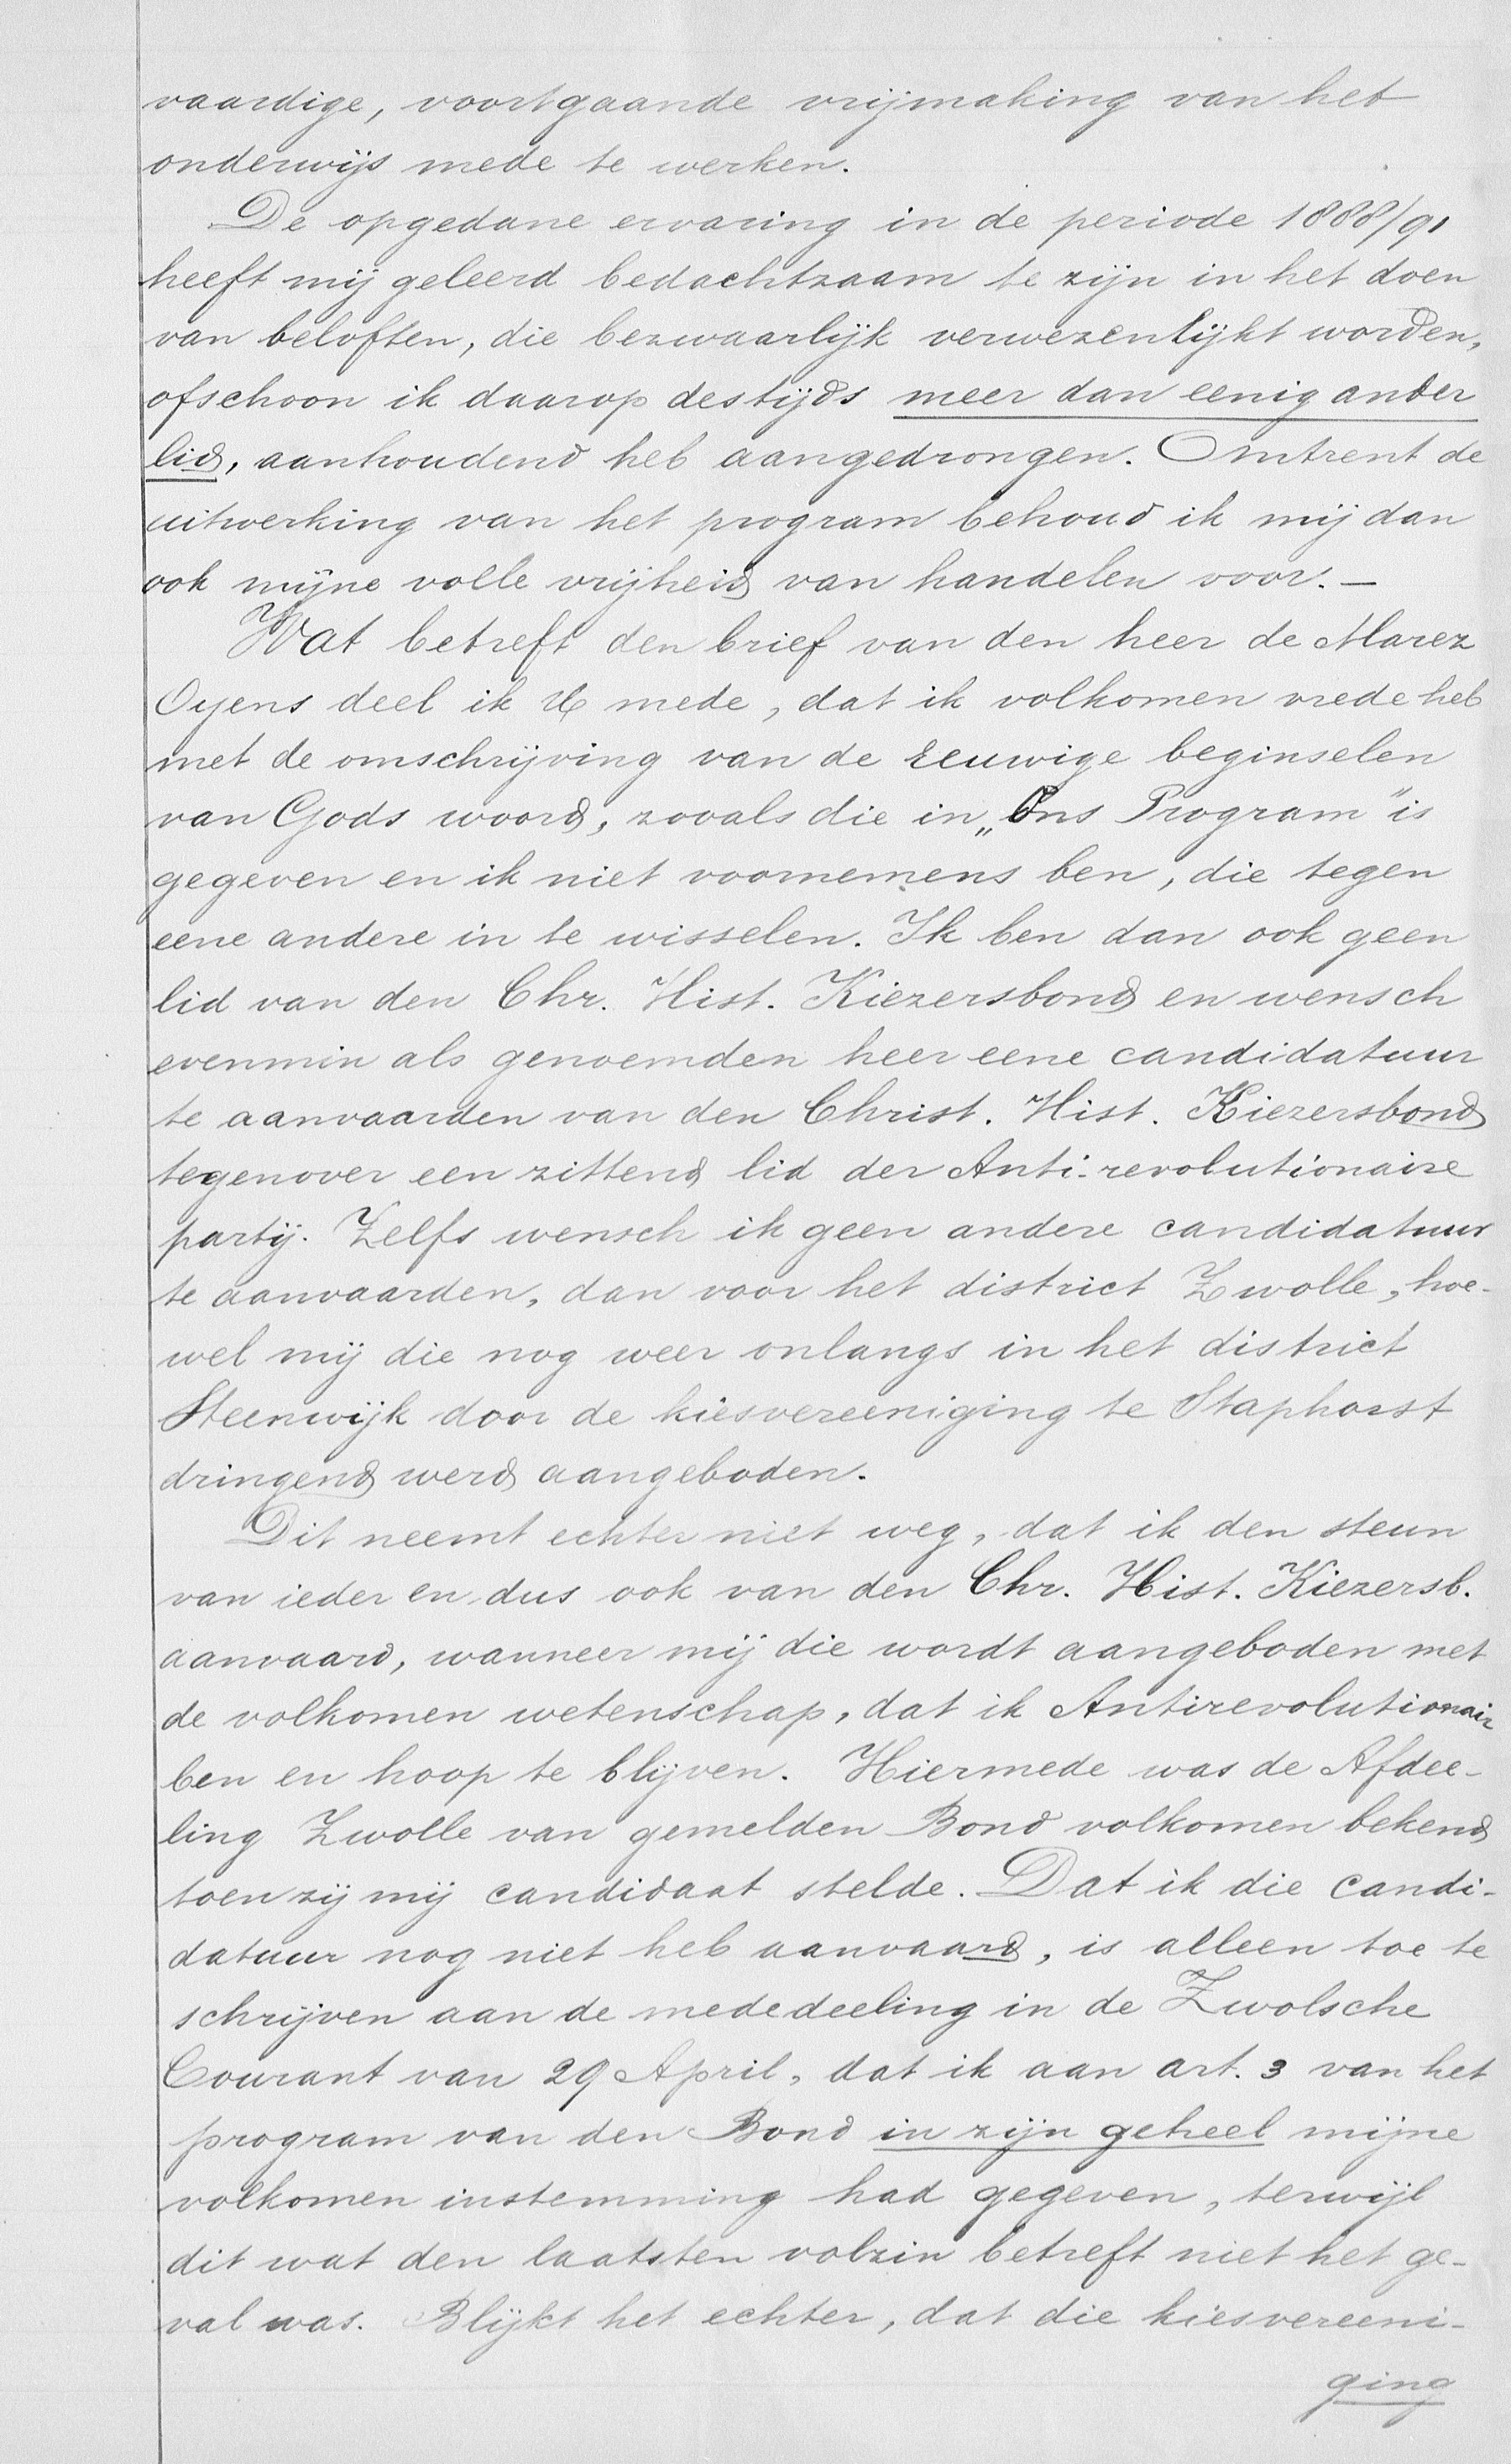 vaardige, voortgaande vrijmaking van het
onderwijs mede te werken.
De opgedane ervaring in de periode 1888/91
heeft mij geleerd bedachtzaam te zijn in het doen
van beloften, die bezwaarlijk verwezenlijkt worden,
ofschoon ik daarop destijds meer dan eenig ander
lid, aanhoudend heb aangedrongen. Omtrent de
uitwerking van het program behoud ik mij dan
ook mijne volle vrijheid van handelen voor. —
Wat betreft den brief van den heer de Marez
Oyens deel ik U mede, dat ik volkomen vrede heb
met de omschrijving van de Eeuwige beginselen
van Gods woord, zooals die in „Ons Program" is
gegeven en ik niet voornemens ben, die tegen
eene andere in te wisselen. Ik ben dan ook geen
lid van den Chr. Hist. Kiezersbond en wensch
evenmin als genoemden heer eene candidatuur
te aanvaarden van den Christ. Hist. Kiezersbond
tegenover een zittend lid der Anti-revolutionaire
partij. Zelfs wensch ik geen andere candidatuur
te aanvaarden, dan voor het district Zwolle, hoe-
wel mij die nog weer onlangs in het district
Steenwijk door de kiesvereeniging te Staphorst
dringend werd aangeboden.
Dit neemt echter niet weg, dat ik den steun
van ieder en dus ook van den Chr. Hist. Kiezersb.
aanvaard, wanneer mij die wordt aangeboden met
de volkomen wetenschap, dat ik Antirevolutionair
ben en hoop te blijven. Hiermede was de Afdee-
ling Zwolle van gemelden Bond volkomen bekend
toen zij mij candidaat stelde. Dat ik die candi-
datuur nog niet heb aanvaard, is alleen toe te
schrijven aan de mededeeling in de Zwolsche
Courant van 29 April, dat ik aan art. 3 van het
program van den Bond in zijn geheel mijne
volkomen instemming had gegeven, terwijl
dit wat den laatsten volzin betreft niet het ge-
val was. Blijkt het echter, dat die kiesvereeni-
ging